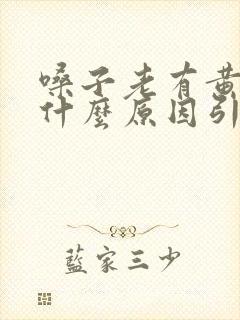 嗓子老有黄
什麼原因引
藍家三少